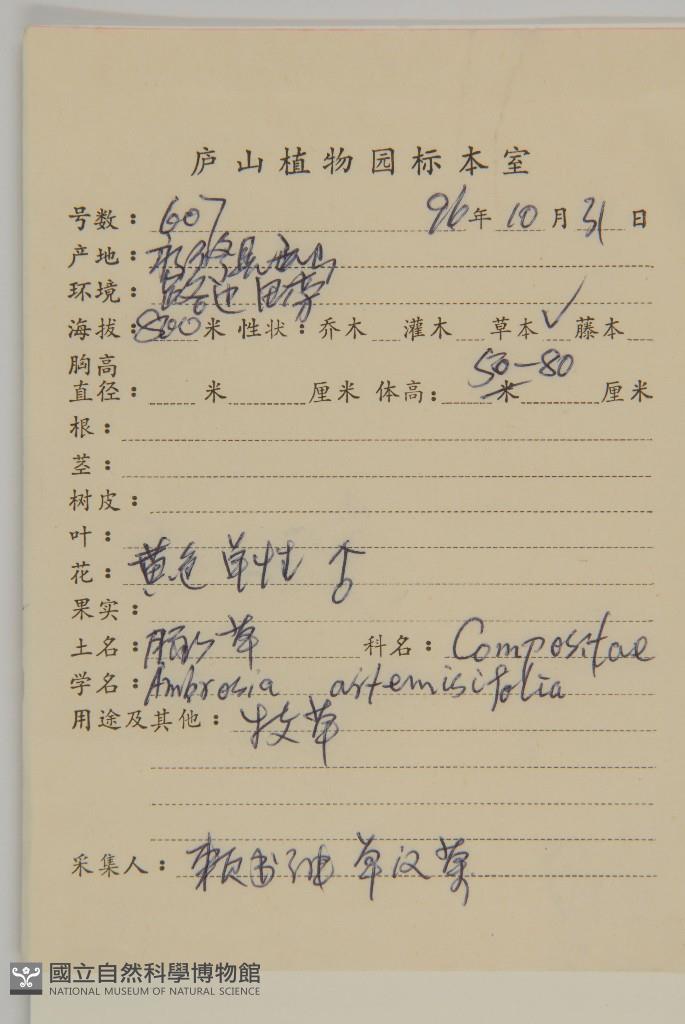 庐山植物园标本室
号数：607 96年10月31日
产地：永修县云山
环境：路边田旁
海拔：800米 性状：乔木 灌木 草本✓ 藤本
胸高
直径： 米 厘米 体高： 米 50—80 厘米
根：
茎：
树皮：
叶：
花：黄色 单性 ♂
果实：
土名： 草 科名：Compositae
学名：Ambrosia artemisifolia
用途及其他：牧草
采集人：赖书绅 单汉荣
國立自然科學博物館
NATIONAL MUSEUM OF NATURAL SCIENCE